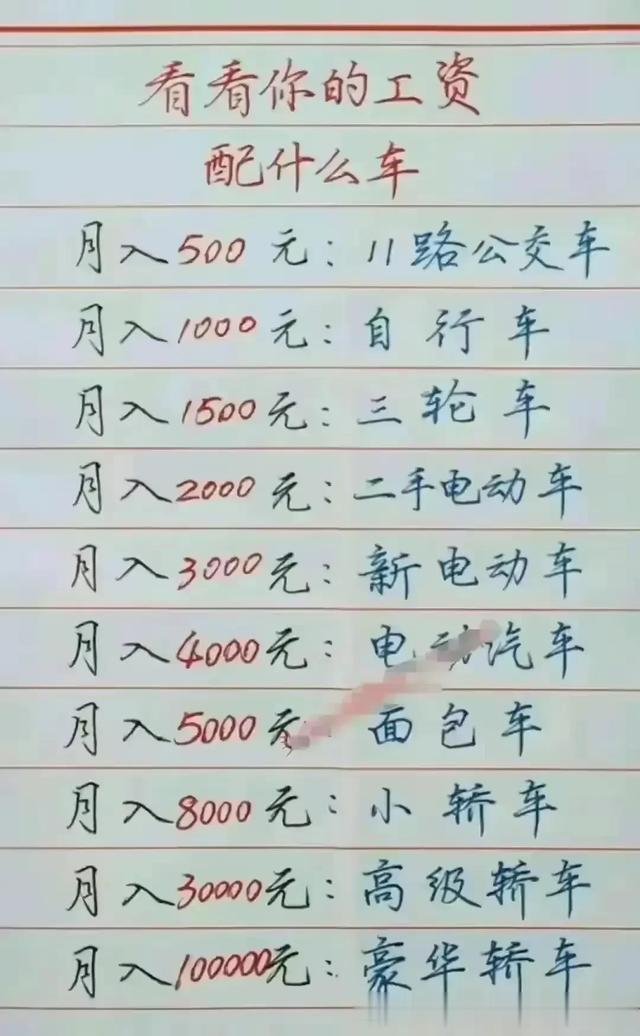 看看你的工资
配什么车
月入500元：11路公交车
月入1000元：自行车
月入1500元：三轮车
月入2000元：二手电动车
月入3000元：新电动车
月入4000元：电动汽车
月入5000元：面包车
月入8000元：小轿车
月入30000元：高级轿车
月入100000元：豪华轿车